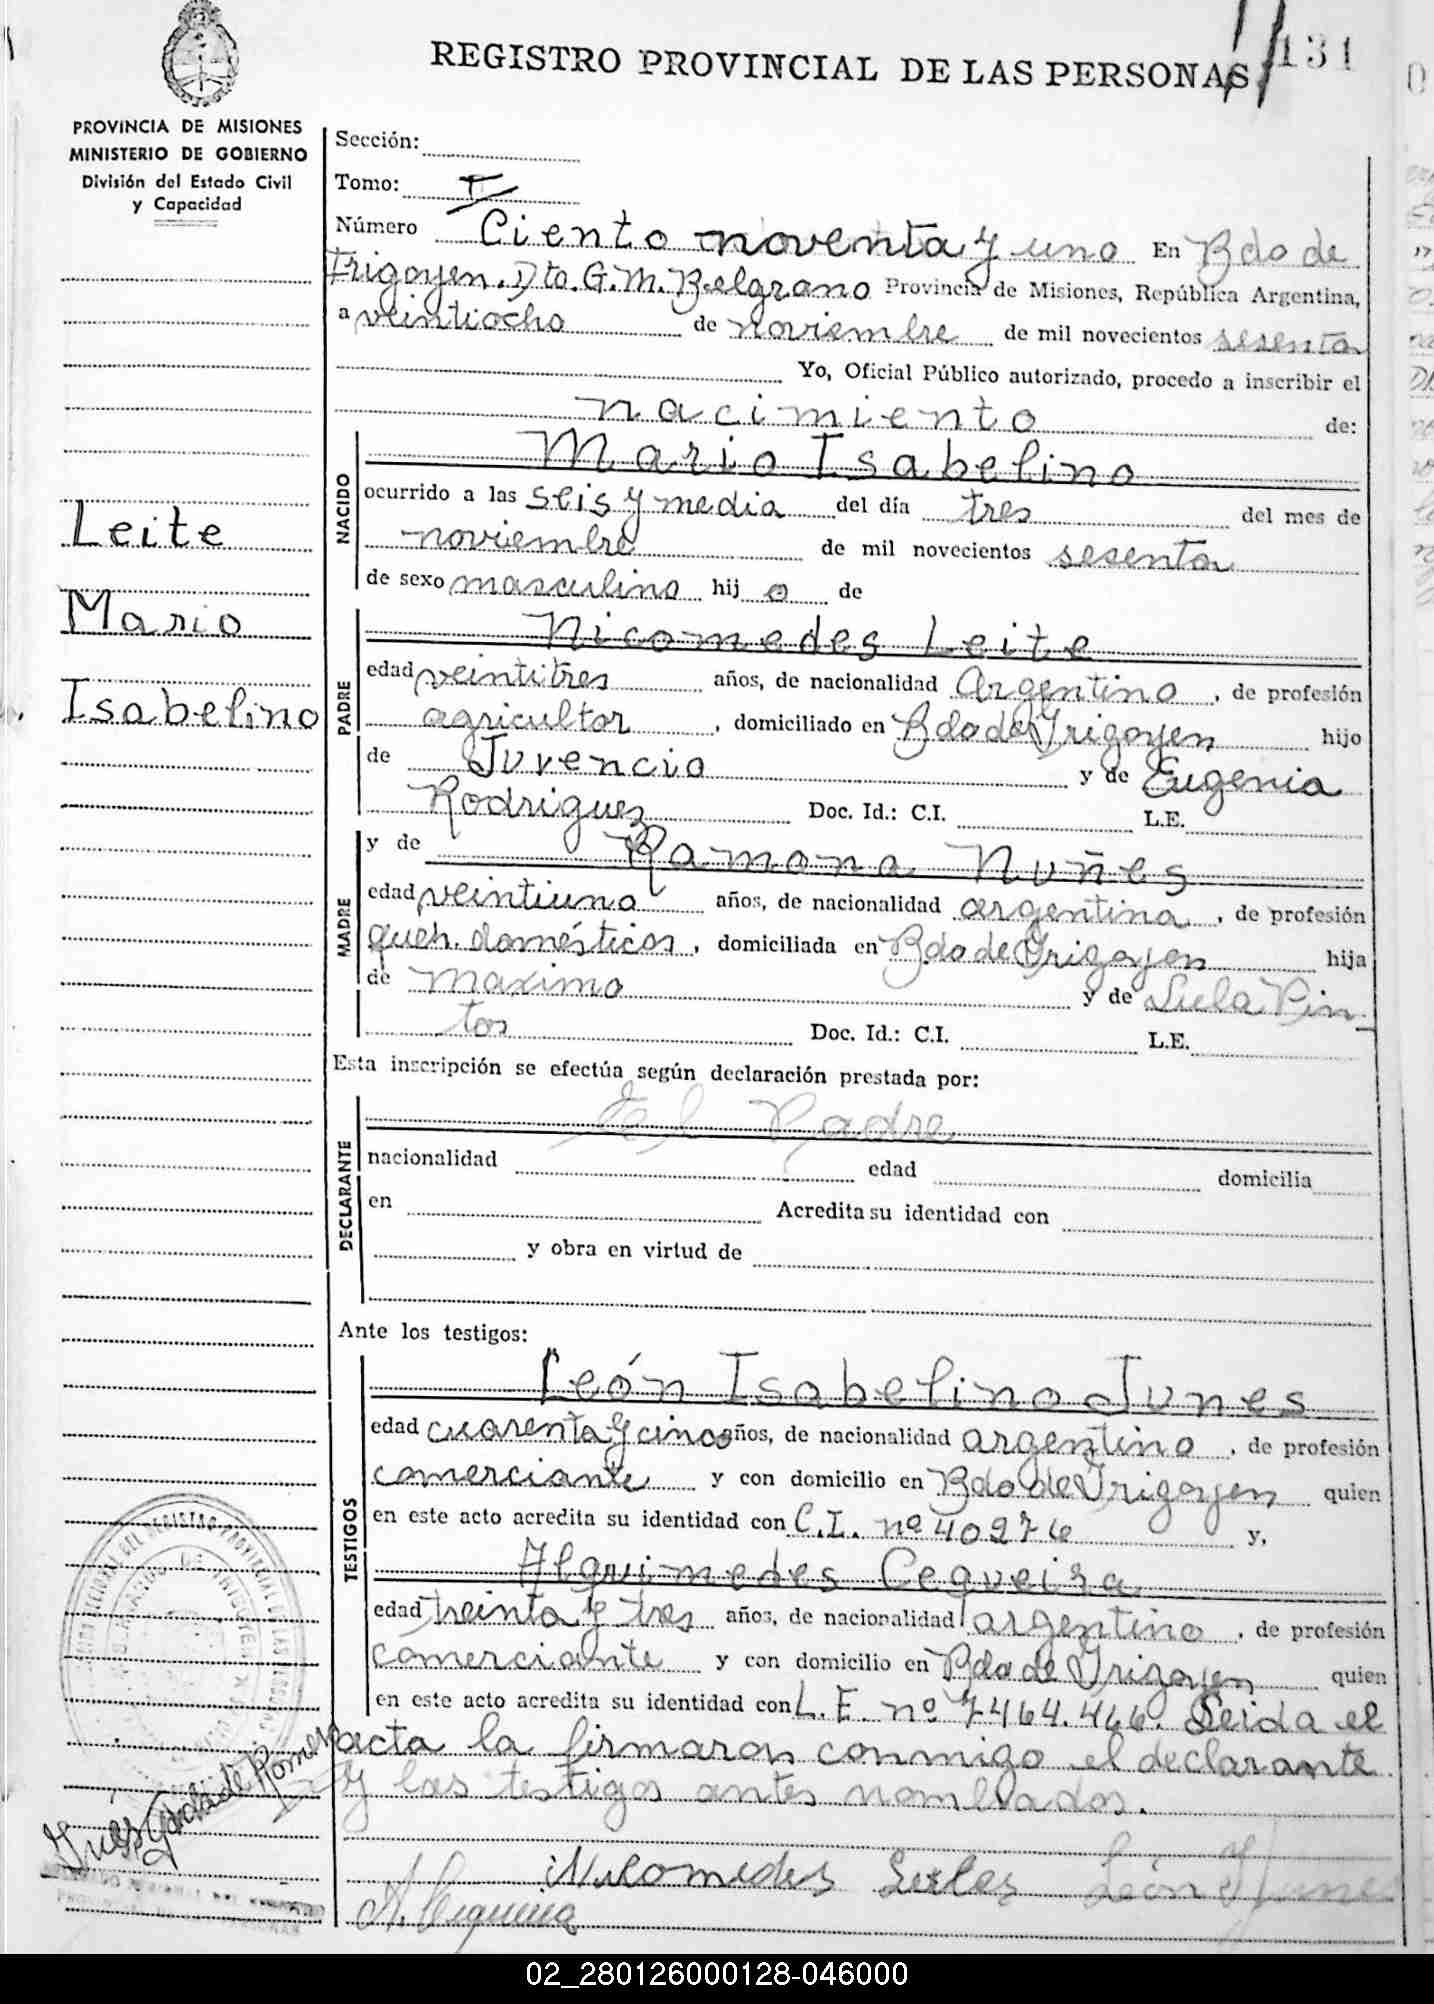 REGISTRO PROVINCIAL DE LAS PERSONAS
131
PROVINCIA DE MISIONES
MINISTERIO DE GOBIERNO
División del Estado Civil
y Capacidad
Leite
Mario
Isabelino
Sección:
Tomo: I
Número Ciento noventa y uno En Bdo de
Irigoyen. Dto. G. M. Belgrano Provincia de Misiones, República Argentina,
a veintiocho de noviembre de mil novecientos sesenta
Yo, Oficial Público autorizado, procedo a inscribir el
nacimiento de:
NACIDO
Mario Isabelino
ocurrido a las seis y media del día tres del mes de
noviembre de mil novecientos sesenta
de sexo masculino hijo de
PADRE
Nicomedes Leite
edad veintitres años, de nacionalidad Argentino, de profesión
agricultor, domiciliado en Bdo de Irigoyen hijo
de Juvencio y de Eugenia
Rodriguez Doc. Id.: C.I. L.E.
MADRE
y de Ramona Nuñes
edad veintiuno años, de nacionalidad argentina, de profesión
queh. domésticos, domiciliada en Bdo de Irigoyen hija
de Maximo y de Lula Pin-
tos Doc. Id.: C.I. L.E.
Esta inscripción se efectúa según declaración prestada por:
DECLARANTE
El Padre
nacionalidad edad domicilia
en Acredita su identidad con
y obra en virtud de
Ante los testigos:
TESTIGOS
León Isabelino Junes
edad cuarenta y cinco años, de nacionalidad argentino, de profesión
comerciante y con domicilio en Bdo de Irigoyen quien
en este acto acredita su identidad con C.I. nº 40976 y,
Alquimedes Cequeira
edad treinta y tres años, de nacionalidad argentino, de profesión
comerciante y con domicilio en Bdo de Irigoyen quien
en este acto acredita su identidad con L.E. nº 7464.466. Leida el
acta la firmaron conmigo el declarante
y los testigos antes nombrados.
Nicomedes León Junes
A. Cequeira
02_280126000128-046000